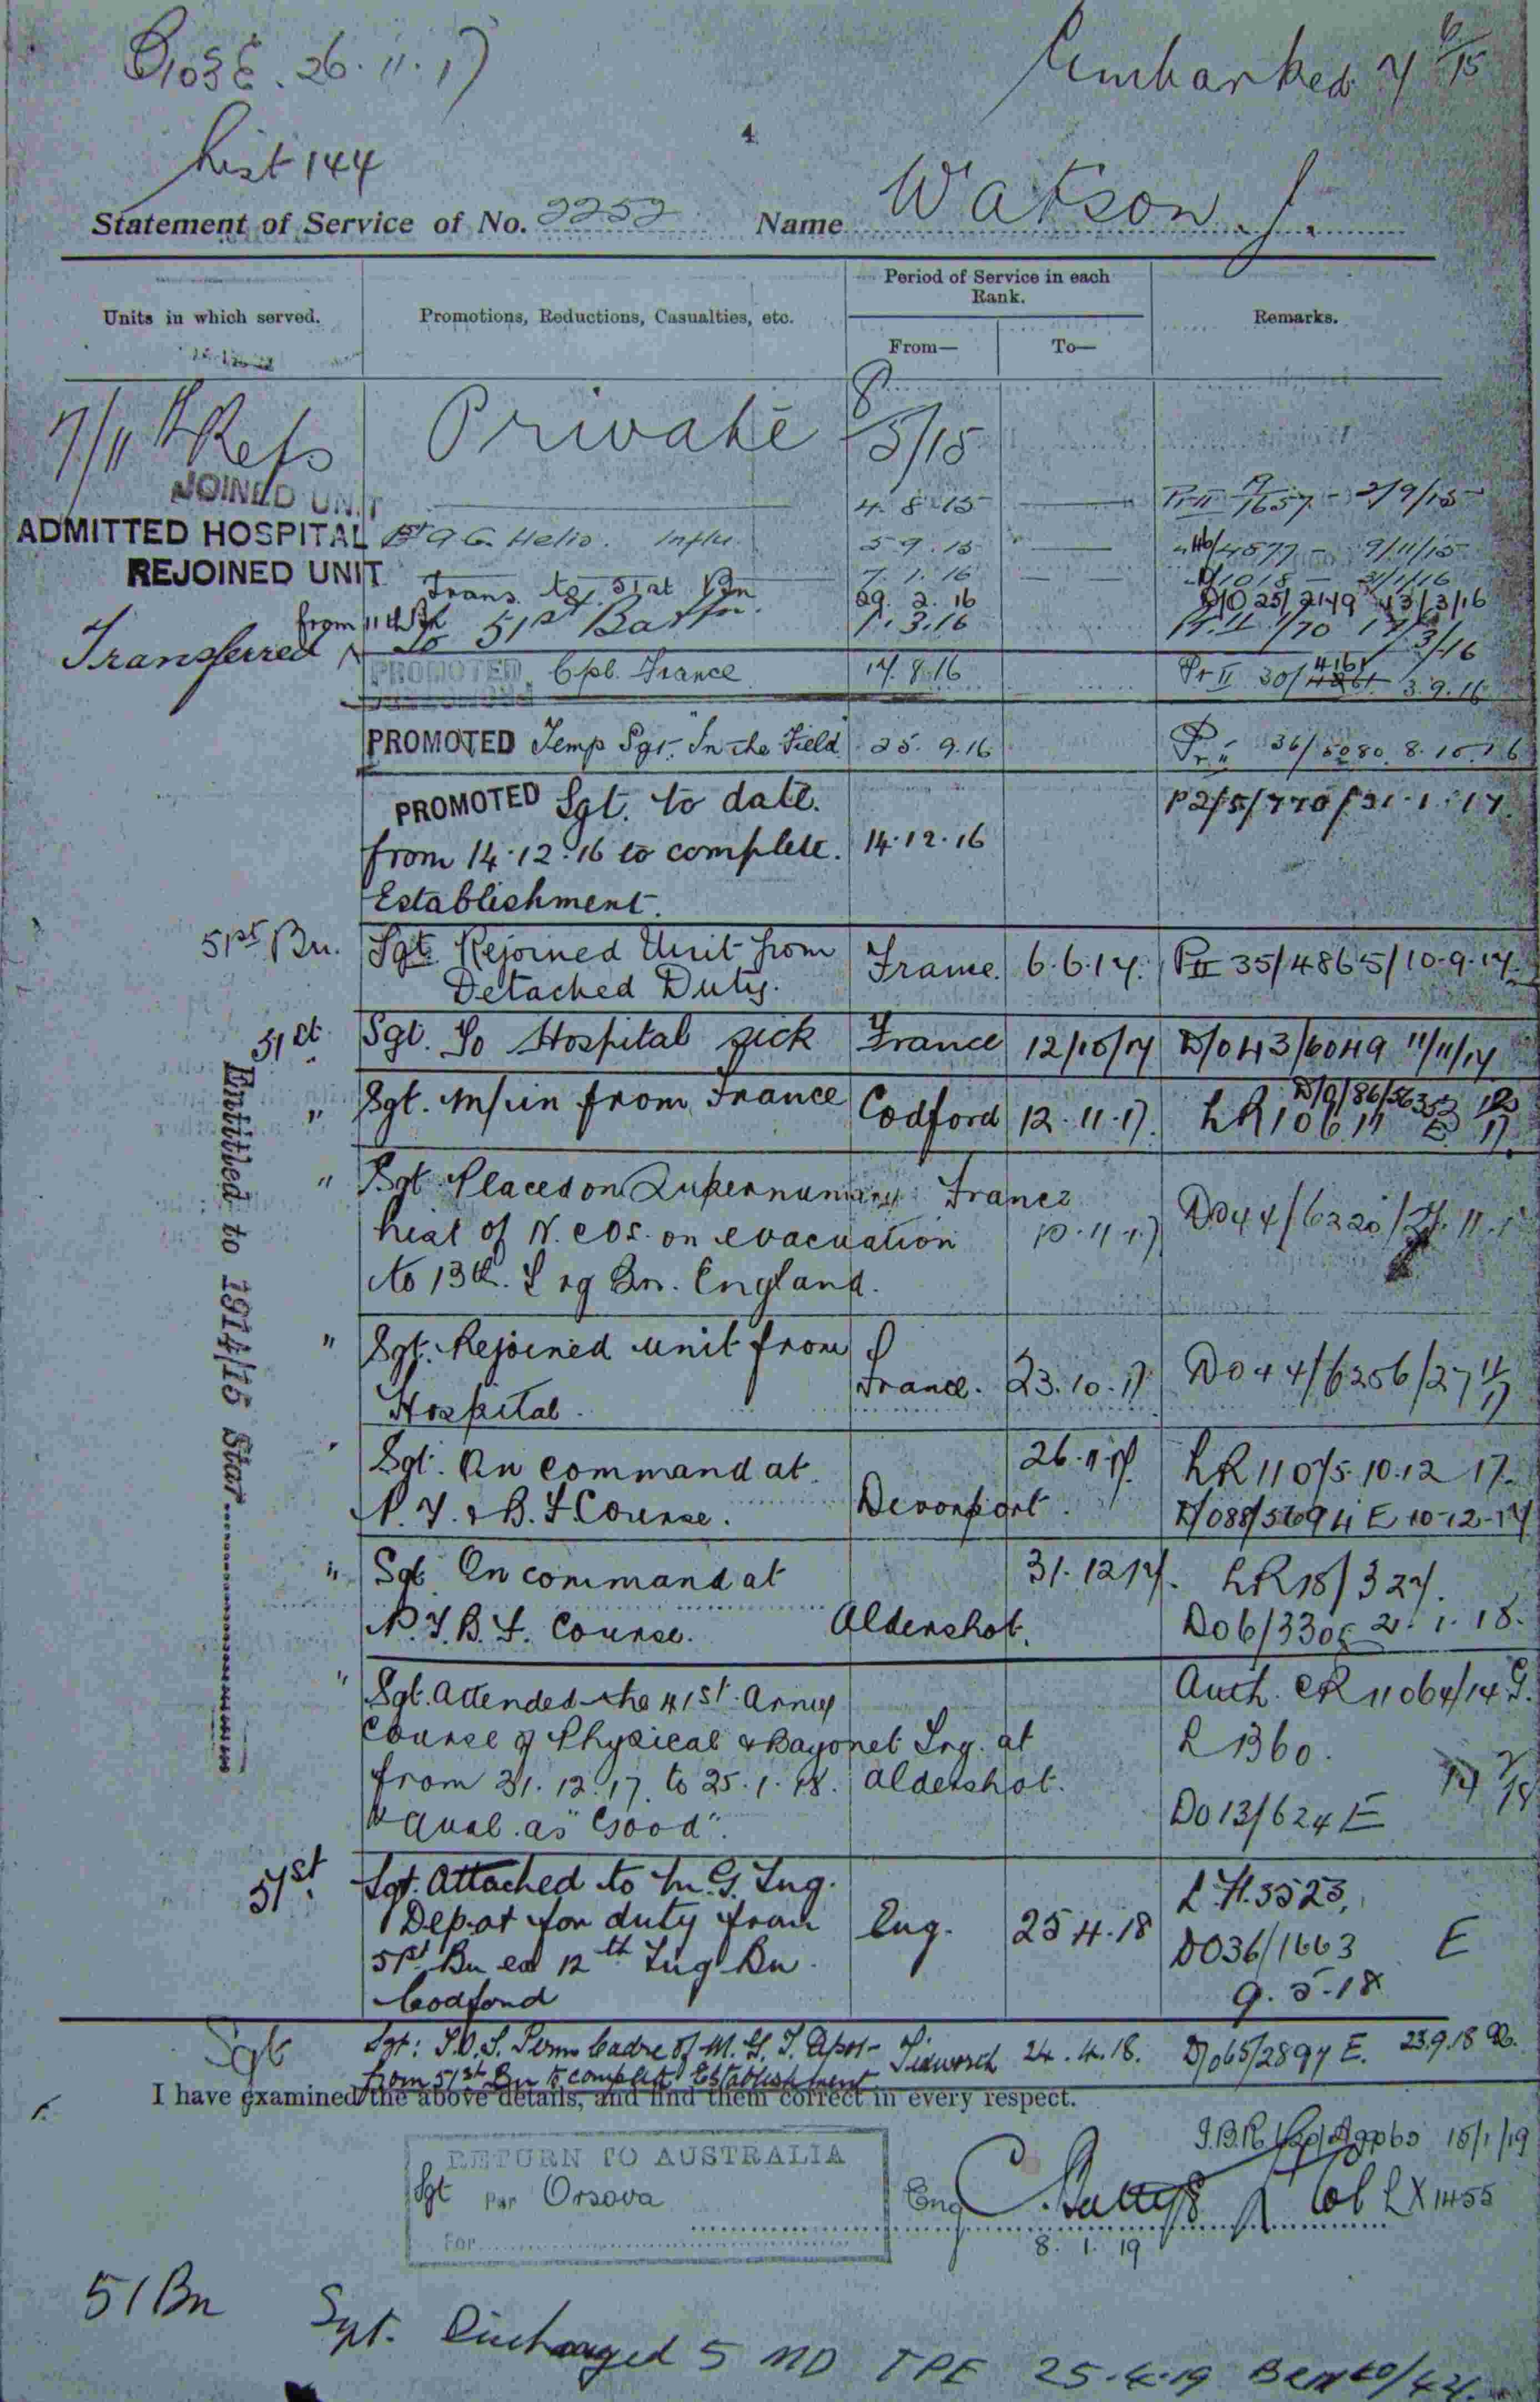 26.11.17
Embarked 7 6/15
List 144
4
Statement of Service of No. 2252 Name Watson J.
Units in which served.
Promotions, Reductions, Casualties, etc.
Period of Service in each Rank.
From—
To—
Remarks.
7/11th Refs Private 8/5/15
JOINED UNIT 4.8.15 2/9/15
ADMITTED HOSPITAL Helio. Influ. 5.9.15 9/11/15
REJOINED UNIT 7.1.16 31/1/16
Trans. to 51st Bn 29.2.16 DO 25/2149 13/3/16
Transferred from 11th Bn to 51st Battn. 1.3.16 Pt. II 1/70 17/3/16
PROMOTED Cpl. France 17.8.16 Pt II 30/4161 3.9.16
PROMOTED Temp Sgt. "In the Field" 25.9.16 36/5080 8.10.16
PROMOTED Sgt. to date P2/5/770/31.1.17.
from 14.12.16 to complete. 14.12.16
Establishment.
51st Bn. Sgt. Rejoined Unit from
Detached Duty. France. 6.6.17. PII 35/4865/10.9.17
51st Sgt. To Hospital sick France 12/10/17 D/O 43/6049 11/11/17
" Sgt. M/in from France Codford 12.11.17.
" Sgt Placed on Supernumary France
List of N.COs. on evacuation 10.11.17 DO44/6220/27.11.17
to 13th. Trg Bn. England.
" Sgt. Rejoined unit from
Hospital. France. 23.10.17 DO44/6256/27 11/17
" Sgt. On command at 26.11.17. LR11075.10.12 17.
P.T. & B.F. Course. Devonport. D/O88/5694 E 10-12-17
" Sgt. On command at 31.12.17. LR18/327.
P.T.B.F. Course. Aldershot. DO6/330E 21.1.18.
" Sgt. Attended the 41st. Army Auth. CR 11064/14.G.
Course of Physical & Bayonet Trg. at L 1360.
from 31.12.17. to 25.1.18. Aldershot.
& Qual. as "Good". DO13/624 E
51st Sgt. Attached to M.G. Trng. L.H.3523.
Depot for duty from Eng. 25.4.18
51st Bn ex 12th Trng Bn. DO36/1663 E
Codford 9.5.18
Entitled to 1914/15 Star
Sgt Sgt: T.O.S. Perm Cadre of M.G.T. Depot Tidworth 24.4.18. D/O65/2897 E. 23.9.18
from 51st Bn to complete Establishment
I have examined the above details, and find them correct in every respect.
15/1/19
RETURN TO AUSTRALIA
Sgt Per Orsova
For
Eng Col LX1455
8.1.19
51 Bn Sgt. Discharged 5 MD TPE 25.4.19